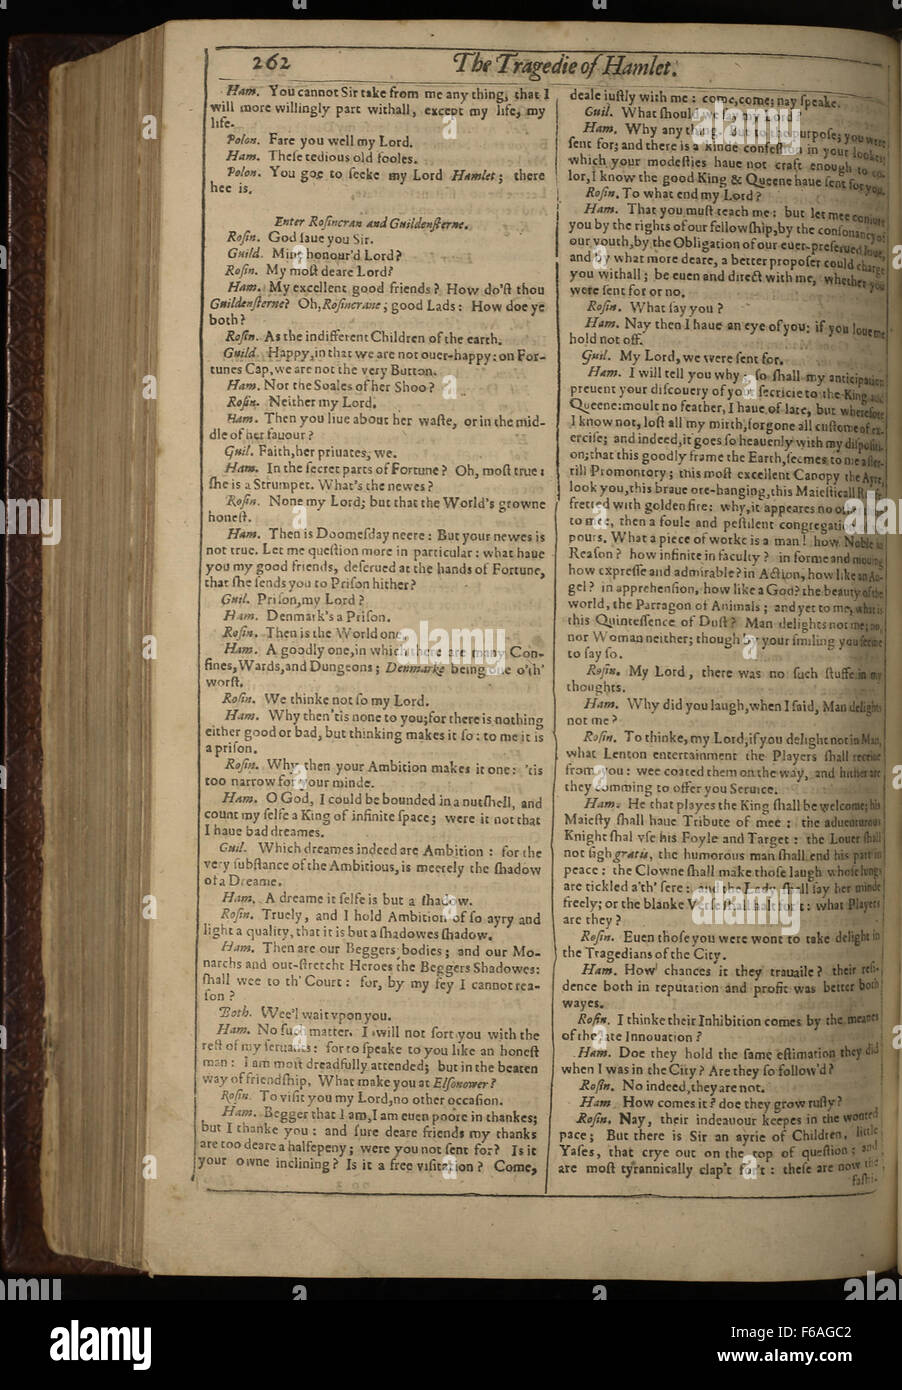 262
The Tragedie of Hamlet.
Ham. You cannot Sir take from me any thing, that I
will more willingly part withall, except my life, my
life.
Polon. Fare you well my Lord.
Ham. These tedious old fooles.
Polon. You goe to seeke my Lord Hamlet; there
hee is.
Enter Rosincran and Guildensterne.
Rosin. God saue you Sir.
Guild. Mine honour'd Lord?
Rosin. My most deare Lord?
Ham. My excellent good friends? How do'st thou
Guildensterne? Oh, Rosincrane; good Lads: How doe ye
both?
Rosin. As the indifferent Children of the earth.
Guild. Happy, in that we are not ouer-happy: on For-
tunes Cap, we are not the very Button.
Ham. Nor the Soales of her Shoo?
Rosin. Neither my Lord.
Ham. Then you liue about her waste, or in the mid-
dle of her fauour?
Guil. Faith, her priuates, we.
Ham. In the secret parts of Fortune? Oh, most true:
she is a Strumpet. What's the newes?
Rosin. None my Lord; but that the World's growne
honest.
Ham. Then is Doomesday neere: But your newes is
not true. Let me question more in particular: what haue
you my good friends, deserued at the hands of Fortune,
that she sends you to Prison hither?
Guil. Prison, my Lord?
Ham. Denmark's a Prison.
Rosin. Then is the World one.
Ham. A goodly one, in which there are many Con-
fines, Wards, and Dungeons; Denmarke being one o'th'
worst.
Rosin. We thinke not so my Lord.
Ham. Why then 'tis none to you; for there is nothing
either good or bad, but thinking makes it so: to me it is
a prison.
Rosin. Why then your Ambition makes it one: 'tis
too narrow for your minde.
Ham. O God, I could be bounded in a nutshell, and
count my selfe a King of infinite space; were it not that
I haue bad dreames.
Guil. Which dreames indeed are Ambition: for the
very substance of the Ambitious, is meerely the shadow
of a Dreame.
Ham. A dreame it selfe is but a shadow.
Rosin. Truely, and I hold Ambition of so ayry and
light a quality, that it is but a shadowes shadow.
Ham. Then are our Beggers bodies; and our Mo-
narchs and out-stretcht Heroes the Beggers Shadowes:
shall wee to th' Court: for, by my fey I cannot rea-
son?
Both. Wee'l wait vpon you.
Ham. No such matter. I will not sort you with the
rest of my seruants: for to speake to you like an honest
man: I am most dreadfully attended; but in the beaten
way of friendship, What make you at Elsonower?
Rosin. To visit you my Lord, no other occasion.
Ham. Begger that I am, I am euen poore in thankes;
but I thanke you: and sure deare friends my thanks
are too deare a halfepeny; were you not sent for? Is it
your owne inclining? Is it a free visitation? Come,
deale iustly with me: come, come; nay speake.
Guil. What should we say my Lord?
Ham. Why any thing. But to the purpose; you were
sent for; and there is a kinde confession in your lookes;
which your modesties haue not craft enough to co-
lor, I know the good King & Queene haue sent for you.
Rosin. To what end my Lord?
Ham. That you must teach me: but let mee coniure
you by the rights of our fellowship, by the consonancy of
our youth, by the Obligation of our euer-preserued loue,
and by what more deare, a better proposer could charge
you withall; be euen and direct with me, whether you
were sent for or no.
Rosin. What say you?
Ham. Nay then I haue an eye of you: if you loue me
hold not off.
Guil. My Lord, we were sent for.
Ham. I will tell you why; so shall my anticipation
preuent your discouery of your secricie to the King and
Queene: moult no feather, I haue of late, but wherefore
I know not, lost all my mirth, forgone all custome of ex-
ercise; and indeed, it goes so heauenly with my dispositi-
on; that this goodly frame the Earth, seemes to me a ster-
rill Promontory; this most excellent Canopy the Ayre,
look you, this braue ore-hanging, this Maiesticall
fretted with golden fire: why, it appeares no
to mee, then a foule and pestilent congregation
pours. What a piece of worke is a man! how Noble in
Reason? how infinite in faculty? in forme and mouing
how expresse and admirable? in Action, how like an An-
gel? in apprehension, how like a God? the beauty of the
world, the Parragon of Animals; and yet to me, what is
this Quintessence of Dust? Man delights not me; no,
nor Woman neither; though by your smiling you seeme
to say so.
Rosin. My Lord, there was no such stuffe in my
thoughts.
Ham. Why did you laugh, when I said, Man delights
not me?
Rosin. To thinke, my Lord, if you delight not in Man,
what Lenton entertainment the Players shall receiue
from you: wee coated them on the way, and hither are
they comming to offer you Seruice.
Ham. He that playes the King shall be welcome; his
Maiesty shall haue Tribute of mee: the aduenturous
Knight shal vse his Foyle and Target: the Louer shall
not sigh gratis, the humorous man shall end his part in
peace: the Clowne shall make those laugh whose lungs
are tickled a'th' sere: and the Lady shall say her minde
freely; or the blanke Verse shall halt for't: what Players
are they?
Rosin. Euen those you were wont to take delight in
the Tragedians of the City.
Ham. How chances it they trauaile? their resi-
dence both in reputation and profit was better both
wayes.
Rosin. I thinke their Inhibition comes by the meanes
of the late Innouation?
Ham. Doe they hold the same estimation they did
when I was in the City? Are they so follow'd?
Rosin. No indeed, they are not.
Ham. How comes it? doe they grow rusty?
Rosin. Nay, their indeauour keepes in the wonted
pace; But there is Sir an ayrie of Children, little
Yases, that crye out on the top of question; and
are most tyrannically clap't for't: these are now the
fashi-
alamy
alamy
alamy
alamy
Image ID: F6AGC2
www.alamy.com